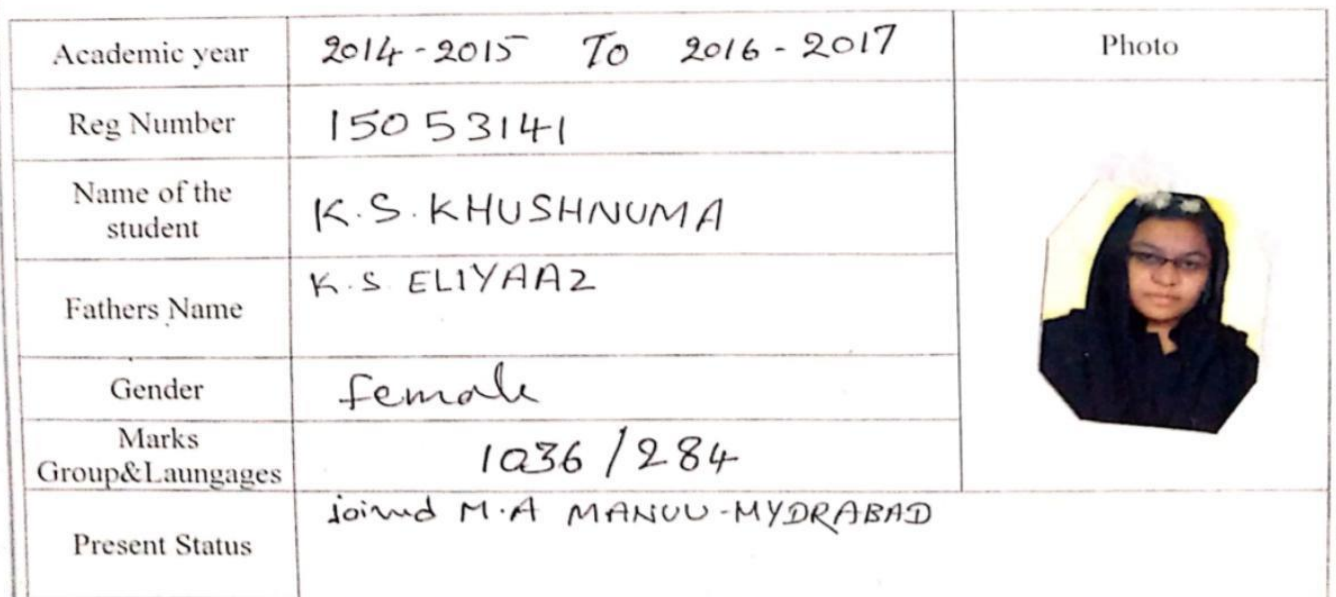 Academic year 2014-2015 To 2016-2017 Photo
Reg Number 15053141
Name of the
student K.S. KHUSHNUMA
Fathers Name K.S. ELIYAAZ
Gender female
Marks
Group&Laungages 1036/284
Present Status joined M.A MANUU-MYDRABAD